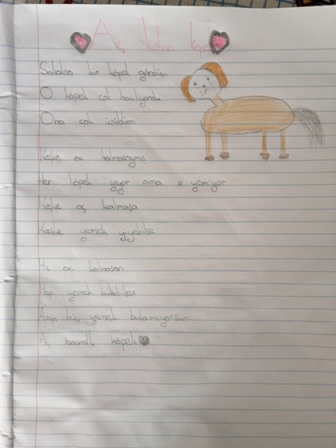 Aç kalan köpek
Sokakta bir köpek gördüm
O köpek çok havlıyordu
Ona çok üzüldüm
Keşke aç kalmasaymış
Her köpek yiyor ama o yemiyor
Keşke aç kalmasa
Keşke yemek yiyebilse
Hiç aç kalmasan
Hep yemek bulabilsen
Ama hiç yemek bulamıyorsun
Aç köpek